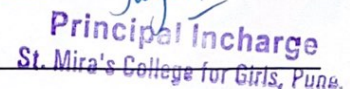 Principal Incharge
St. Mira's College for Girls, Pune.